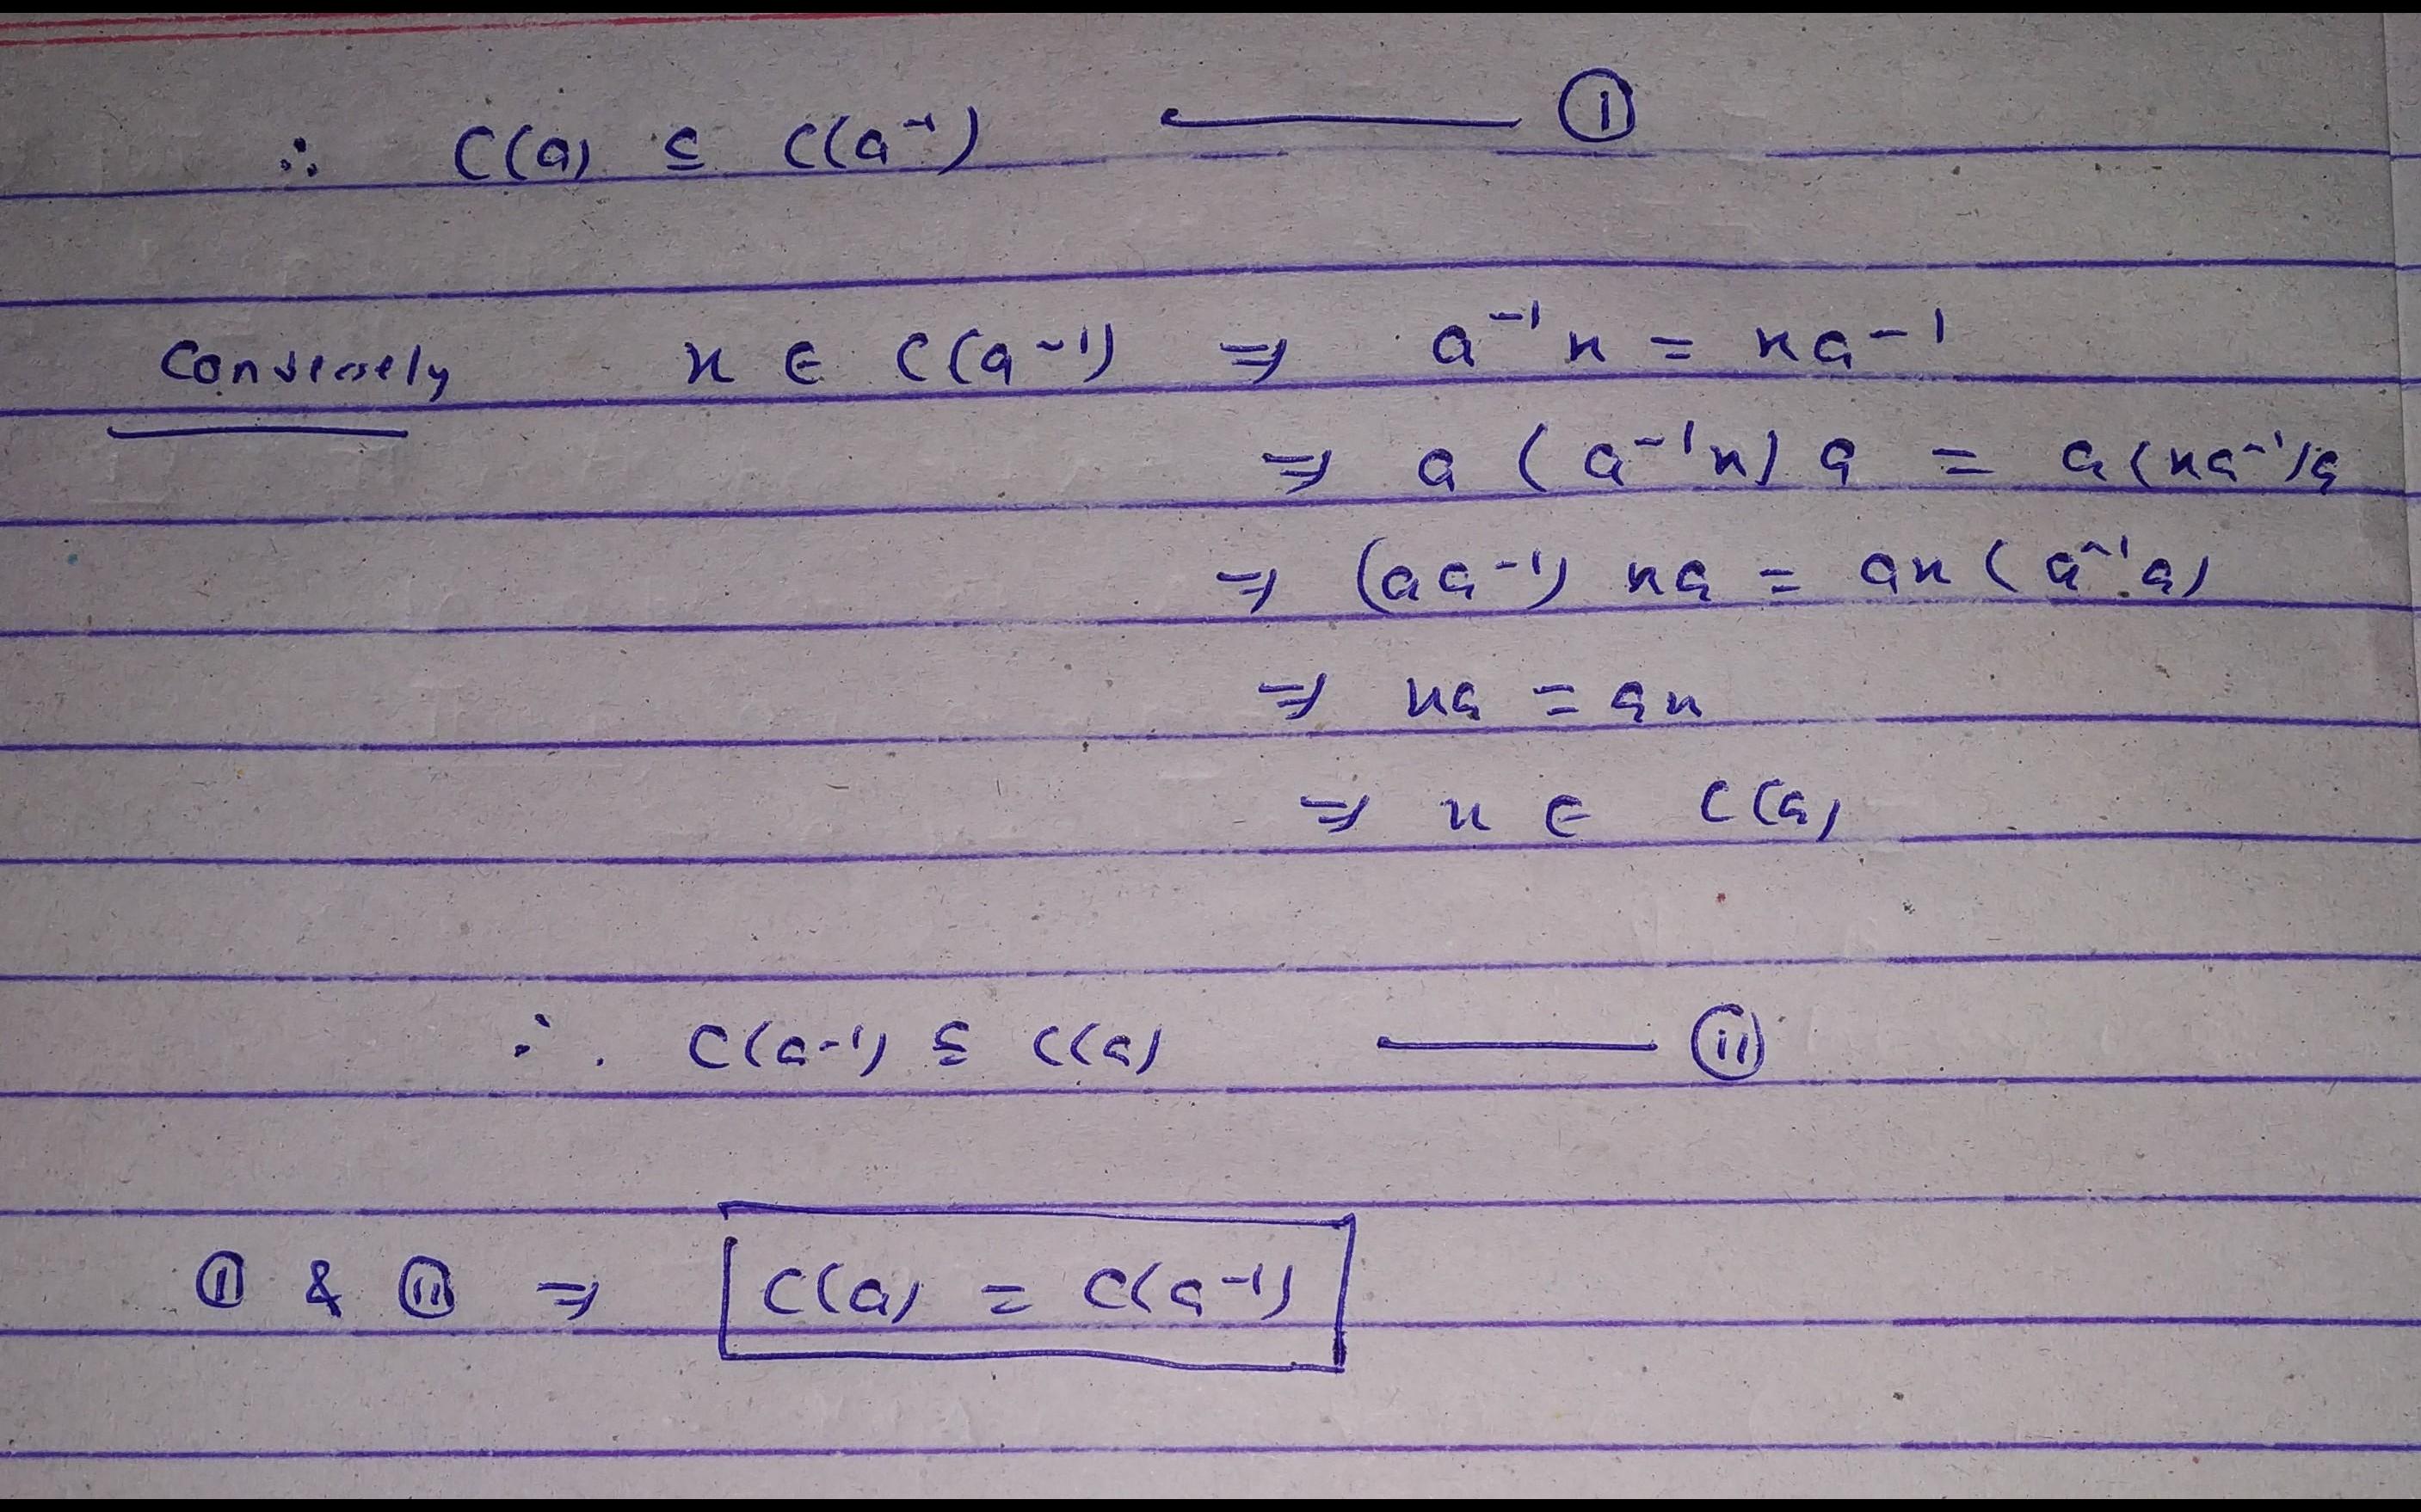 ∴ C(a) ⊆ C(a⁻¹) ——— (i)
Conversely x ∈ C(a⁻¹) ⇒ a⁻¹x = xa⁻¹
⇒ a (a⁻¹x) a = a(xa⁻¹)a
⇒ (aa⁻¹) xa = ax (a⁻¹a)
⇒ xa = ax
⇒ x ∈ C(a)
∴ C(a⁻¹) ⊆ C(a) ——— (ii)
(i) & (ii) ⇒ C(a) = C(a⁻¹)